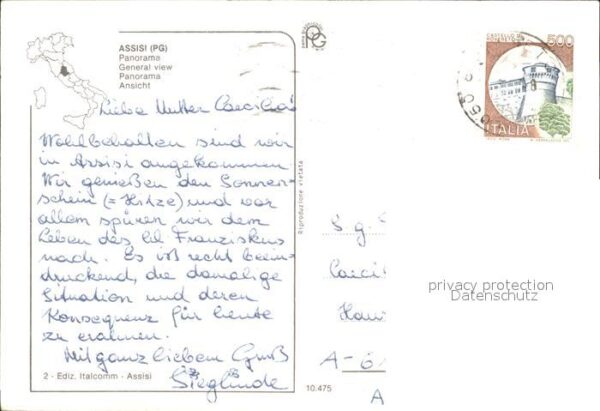 ASSISI (PG)
Panorama
General view
Panorama
Ansicht
Liebe Mutter Caecilia!
Wohlbehalten sind wir
in Assisi angekommen.
Wir genießen den Sonnen-
schein (= Hitze) und vor
allem spüren wir dem
Leben des hl Franziskus
nach. Es ist recht beein-
druckend, die damalige
Situation und deren
Konsequenz für heute
zu erahnen.
Mit ganz liebem Gruß
Sieglinde
2 - Ediz. Italcomm - Assisi
Riproduzione vietata
10.475
CASTELLO DI
500
ITALIA
S. g.
Caeci
A - 6
A
privacy protection
Datenschutz